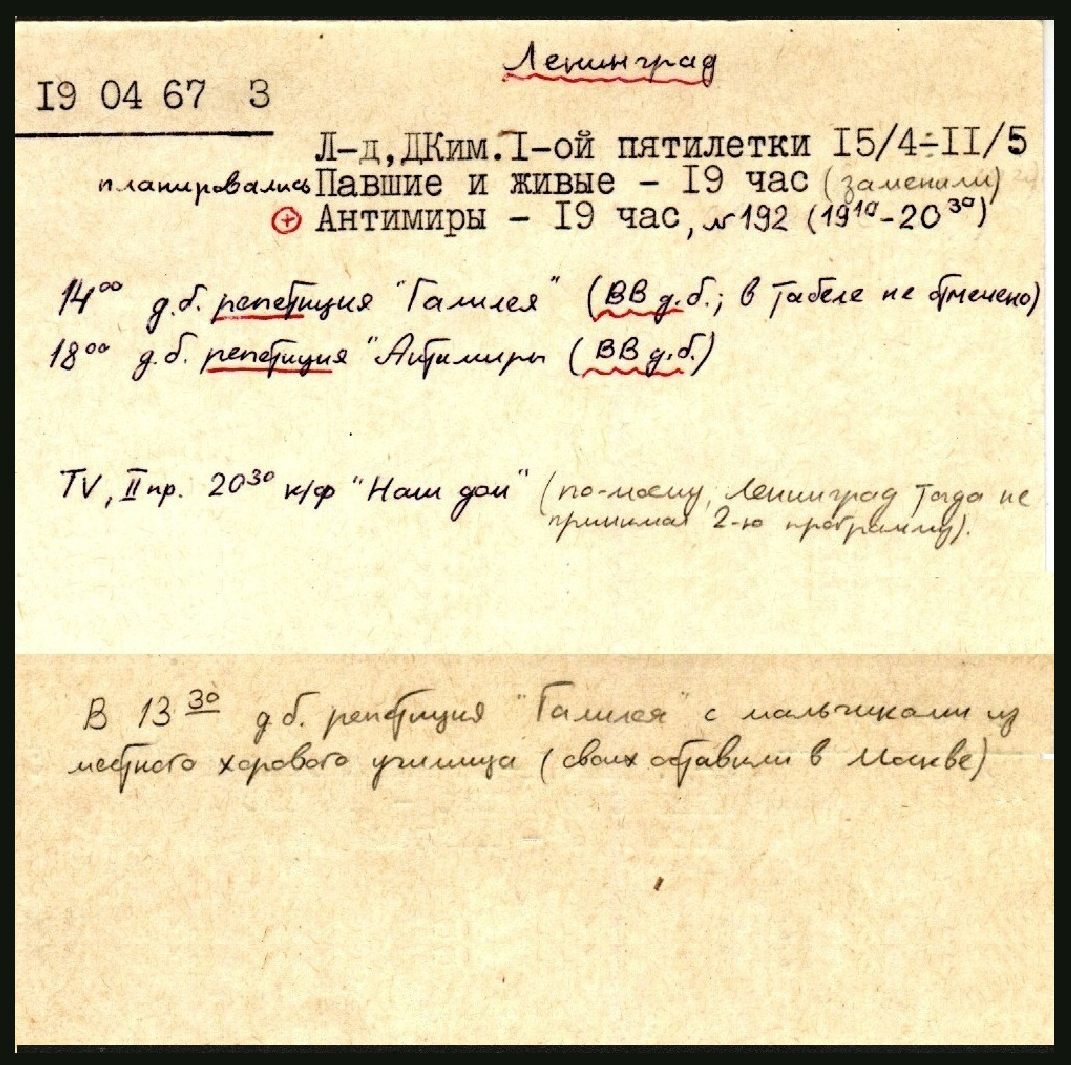 Ленинград
I9 04 67 3
Л-д, ДКим. I-ой пятилетки I5/4÷II/5
планировались Павшие и живые - I9 час (заменили)
+ Антимиры - I9 час, №192 (19¹⁰-20³⁰)
14⁰⁰ д.б. репетиция "Галилея" (ВВ д.б.; в табеле не отмечено)
18⁰⁰ д.б. репетиция "Антимиры (ВВ д.б.)
TV, II пр. 20³⁰ к/ф "Наш дом" (по-моему, Ленинград тогда не
принимал 2-ю программу).
В 13³⁰ д.б. репетиция "Галилея" с мальчиками из
местного хорового училища (своих оставили в Москве)